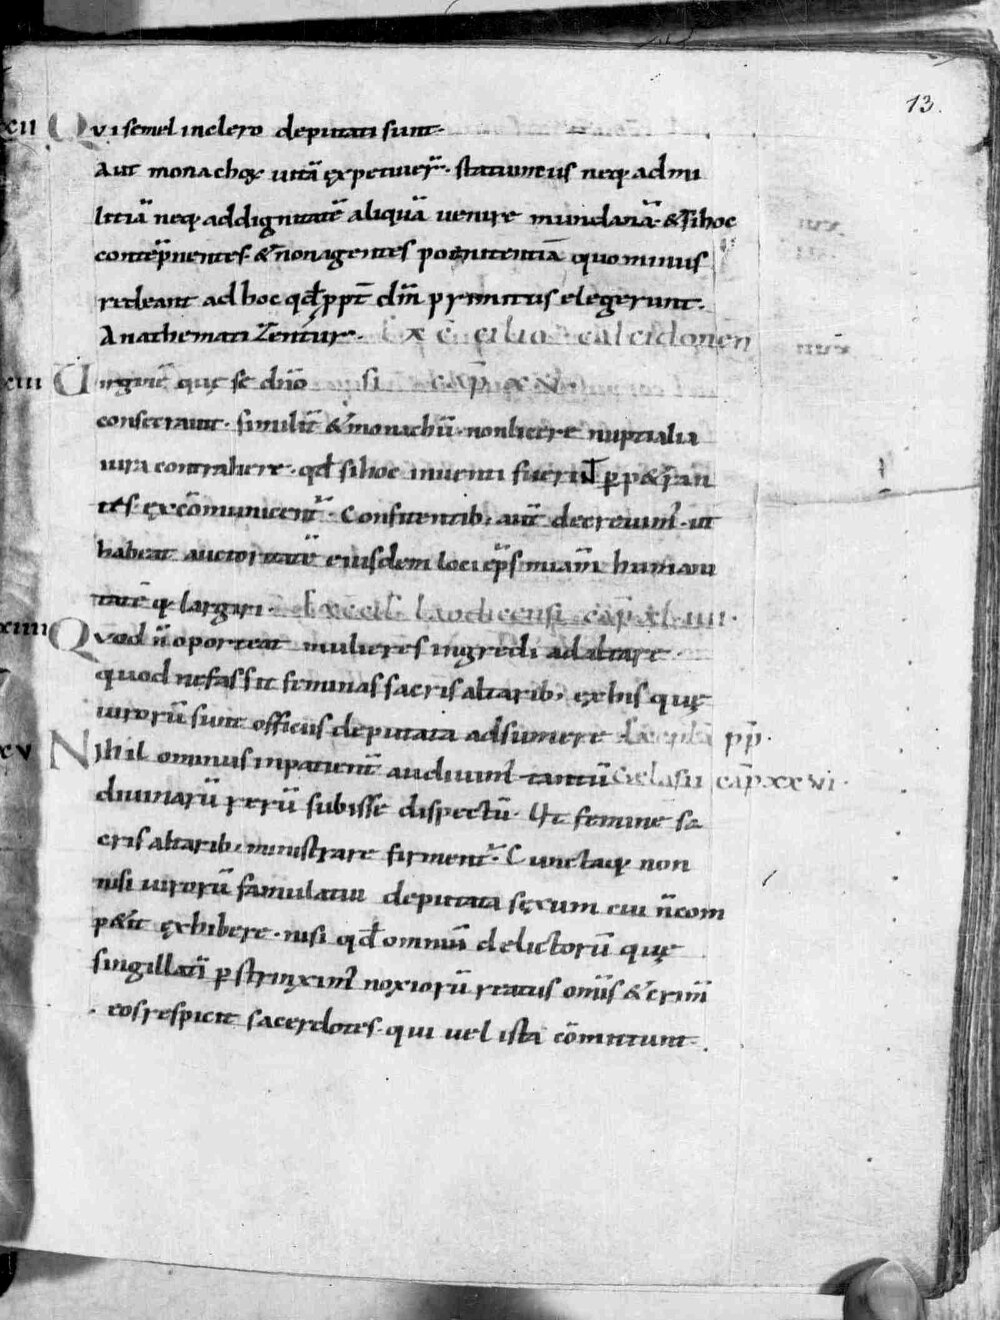 13.
XCII Qui semel in clero deputati sunt·
Aut monachoꝝ uitā expetiuer̄· statuimus neq; ad mi
litiā neq; ad dignitatē aliquā uenire mundanā· & si hoc
contēpnentes· & ñ non agentes poenitentiā quo minus
redeant ad hoc qđ ppt̄ dm̄ primitus elegerunt·
Anathematizentur· Ex c̄cilio calcidonen
XCIII Uirginē quę se dn̄o si cap̄ XVI·
consecrauit· similit̄ & monachū· non licere nuptialia
iura contrahere· qđ si hoc inuenti fuerint ꝑpetran
tes· excōmunicent̄· Confitentib; aut̄ decreuim̄· ut
habeat auctoritatē eiusdem loci ep̄s mīam humani
tatē q; largiri· Ex c̄cil· laodicensi cap̄ XLIIII·
XCIIII Quod ñ oporteat mulieres ingredi ad altare·
quod nefas sit feminas sacris altarib; ex his quę
uirorū sunt officiis deputata adsumere decretā pp̄·
XCV Nihil ominus inpatient̄ audiuim̄ tantū Gelasii cap̄ XXVI·
diuinarū rerū subisse dispectū· Ut femine sa
cris altarib; ministrare firment̄· Cunctaq; non
nisi uirorū famulatui deputata sexum cui ñ com
pet̄it exhibere· nisi qđ omnium delictorū quę
singillatī ꝑstrinxim̄ noxiorū reatus om̄is & crim̄
eos respicit sacerdotes· qui uel ista cōmittunt·